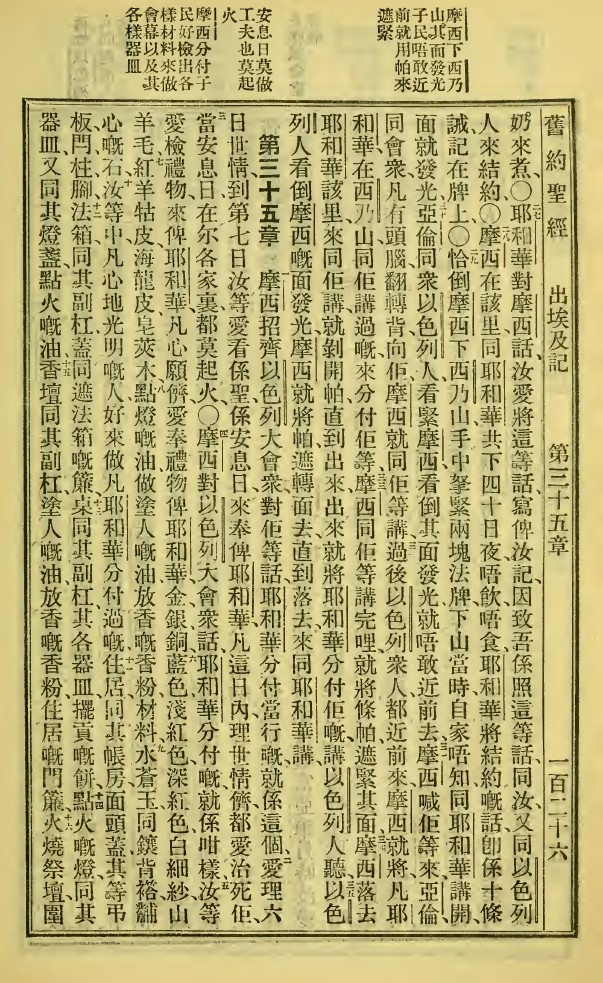 舊約聖經 出埃及記 第三十五章 一百二十六
摩西下西乃
山其面發光
子民唔敢近
前就用帕來
遮緊
安息日莫做
工夫也莫起
火
摩西分付子
民好檢出各
樣材料來做
會幕以及其
各樣器皿
奶來煮、〇耶和華對摩西話、汝愛將這等話寫俾汝記、因致吾係照這等話、同汝又同以色列
人來結約、〇摩西在該里、同耶和華共下四十日夜、唔飲唔食、耶和華將結約嘅話、卽係十條
誡、記在牌上、〇恰倒摩西下西乃山、手中拏緊兩塊法牌、下山當時、自家唔知、同耶和華講開、
面就發光、亞倫同衆以色列人看緊摩西、看倒其面發光、就唔敢近前去、摩西喊佢等來、亞倫
同會衆凡有頭腦、翻轉背向佢、摩西就同佢等講、過後以色列衆人都近前來、摩西就將凡耶
和華在西乃山同佢講過嘅、來分付佢等、摩西同佢等講完哩、就將條帕遮緊其面、摩西落去
耶和華該里來同佢講、就剝開帕、直到出來、出來就將耶和華分付佢嘅、講以色列人聽、以色
列人看倒摩西嘅面發光、摩西就將帕遮轉面去、直到落去來同耶和華講、
第三十五章 摩西招齊以色列大會衆、對佢等話、耶和華分付當行嘅、就係這個、愛理六
日世情、到第七日、汝等愛看係聖、係安息日來奉俾耶和華、凡這日內理世情儕、都愛治死佢、
當安息日、在尔各家裏都莫起火、〇摩西對以色列大會衆話、耶和華分付嘅、就係咁樣、汝等
愛檢禮物來俾耶和華、凡心願儕、愛奉禮物俾耶和華、金、銀、銅、藍色、淺紅色、深紅色、白細紗、山
羊毛、紅羊牯皮、海龍皮、皂莢木、點燈嘅油、做塗人嘅油、放香嘅香粉材料、水蒼玉、同鑲背褡黼
心嘅石、汝等中凡心地光明嘅人、好來做凡耶和華分付過嘅、住居、同其帳房、面頭蓋、其等弔
板、門、柱、腳、法箱、同其副杠、蓋、同遮法箱嘅簾、桌、同其副杠、其各器皿、擺貢嘅餅、點火嘅燈、同其
器皿、又同其燈盞、點火嘅油、香壇、同其副杠、塗人嘅油、放香嘅香粉、住居嘅門簾、火燒祭壇、圍